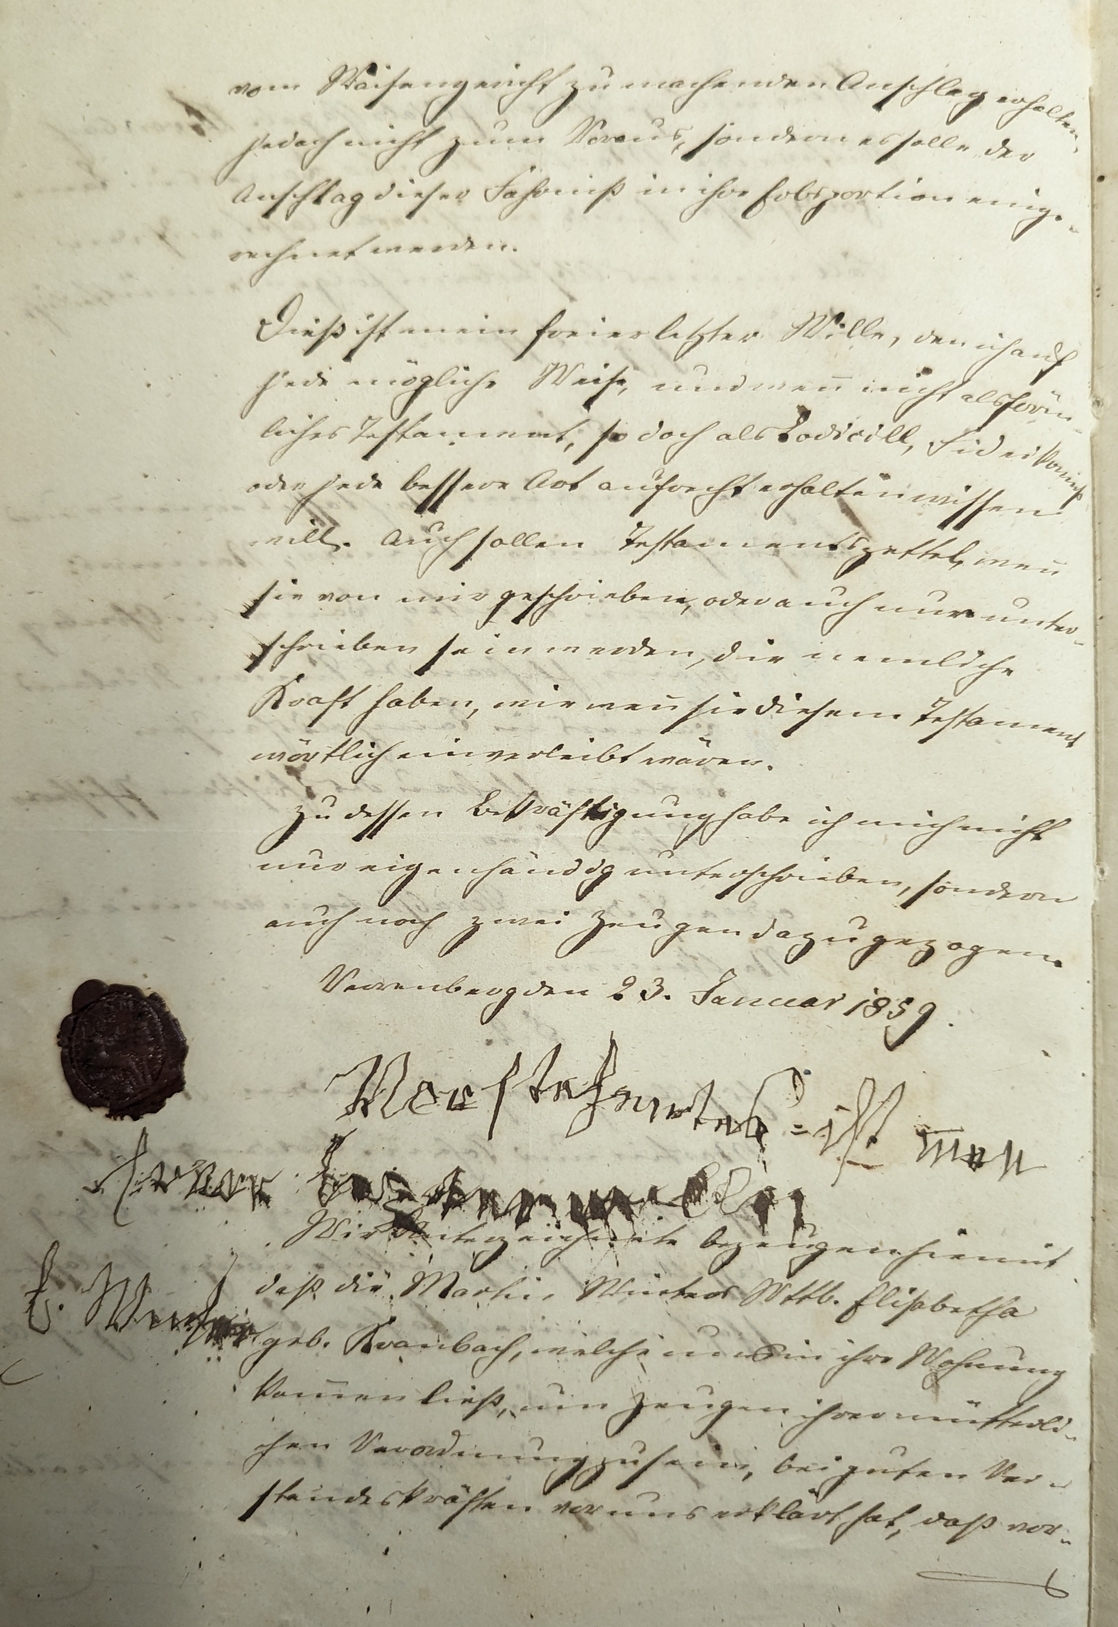 vom Waisengericht zu machenden Anschlag erhalten,
jedoch nicht zum Voraus, sondern es solle der
Anschlag dieser Fahrniß in ihre Erbsportion einge-
rechnet werden.
Dieß ist mein freier letzter Wille, den ich auf
jede mögliche Weise, und wen̅ nicht als förm-
liches Testament, so doch als Kodicill, Fideikom̅iß
oder jede bessere Art aufrecht erhalten wissen
will. Auch sollen Testamentszettel, wen̅
sie von mir geschrieben, oder auch nur unter-
schrieben sein werden, die nemliche
Kraft haben, wie wen̅ sie diesem Testament
wörtlich einverleibt wären.
Zu dessen Bekräftigung habe ich mich nicht
nur eigenhändig unterschrieben, sondern
auch noch zwei Zeugen dazu gezogen.
den 23. Januar 1859.
ist mein
Wir Unterzeichnete bezeugen hiemit
daß die Martin Winters Wttb. Elisabetha
geb. Kranbach, welche uns in ihre Wohnung
kom̅en ließ, um Zeugen ihrer mütterli-
chen Verordnung zu sein, bei guten Ver-
standeskräften vor uns erklärt hat, daß vor-